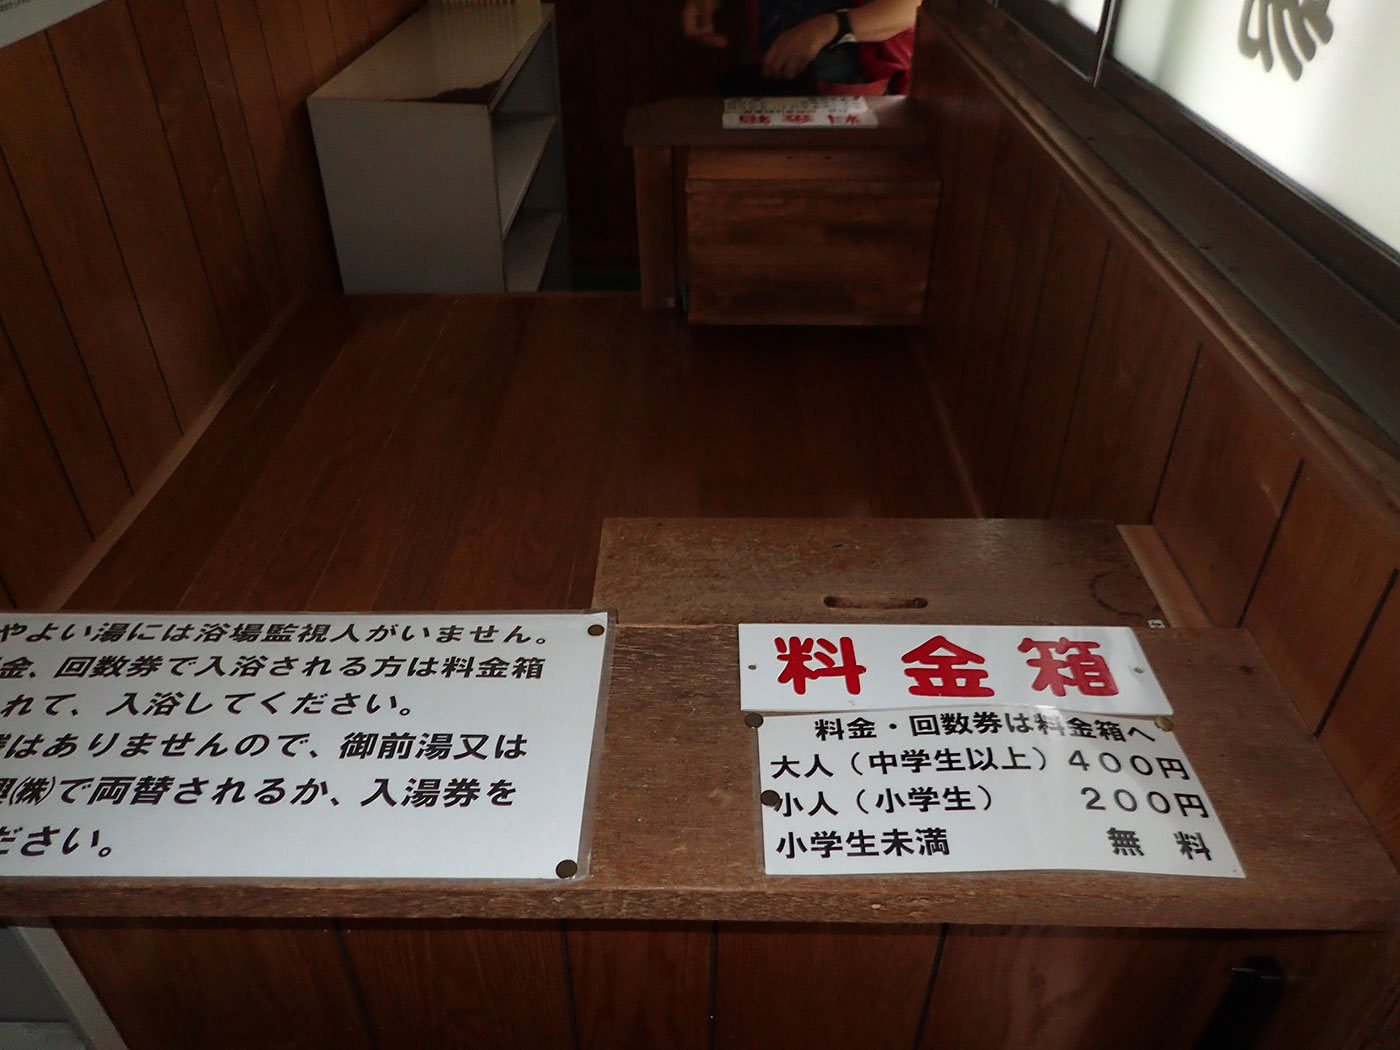 やよい湯には浴場監視人がいません。
金、回数券で入浴される方は料金箱
れて、入浴してください。
はありませんので、御前湯又は
興㈱で両替されるか、入湯券を
ださい。
料金箱
料金・回数券は料金箱へ
大人（中学生以上）４００円
小人（小学生）２００円
小学生未満 無料
料金箱